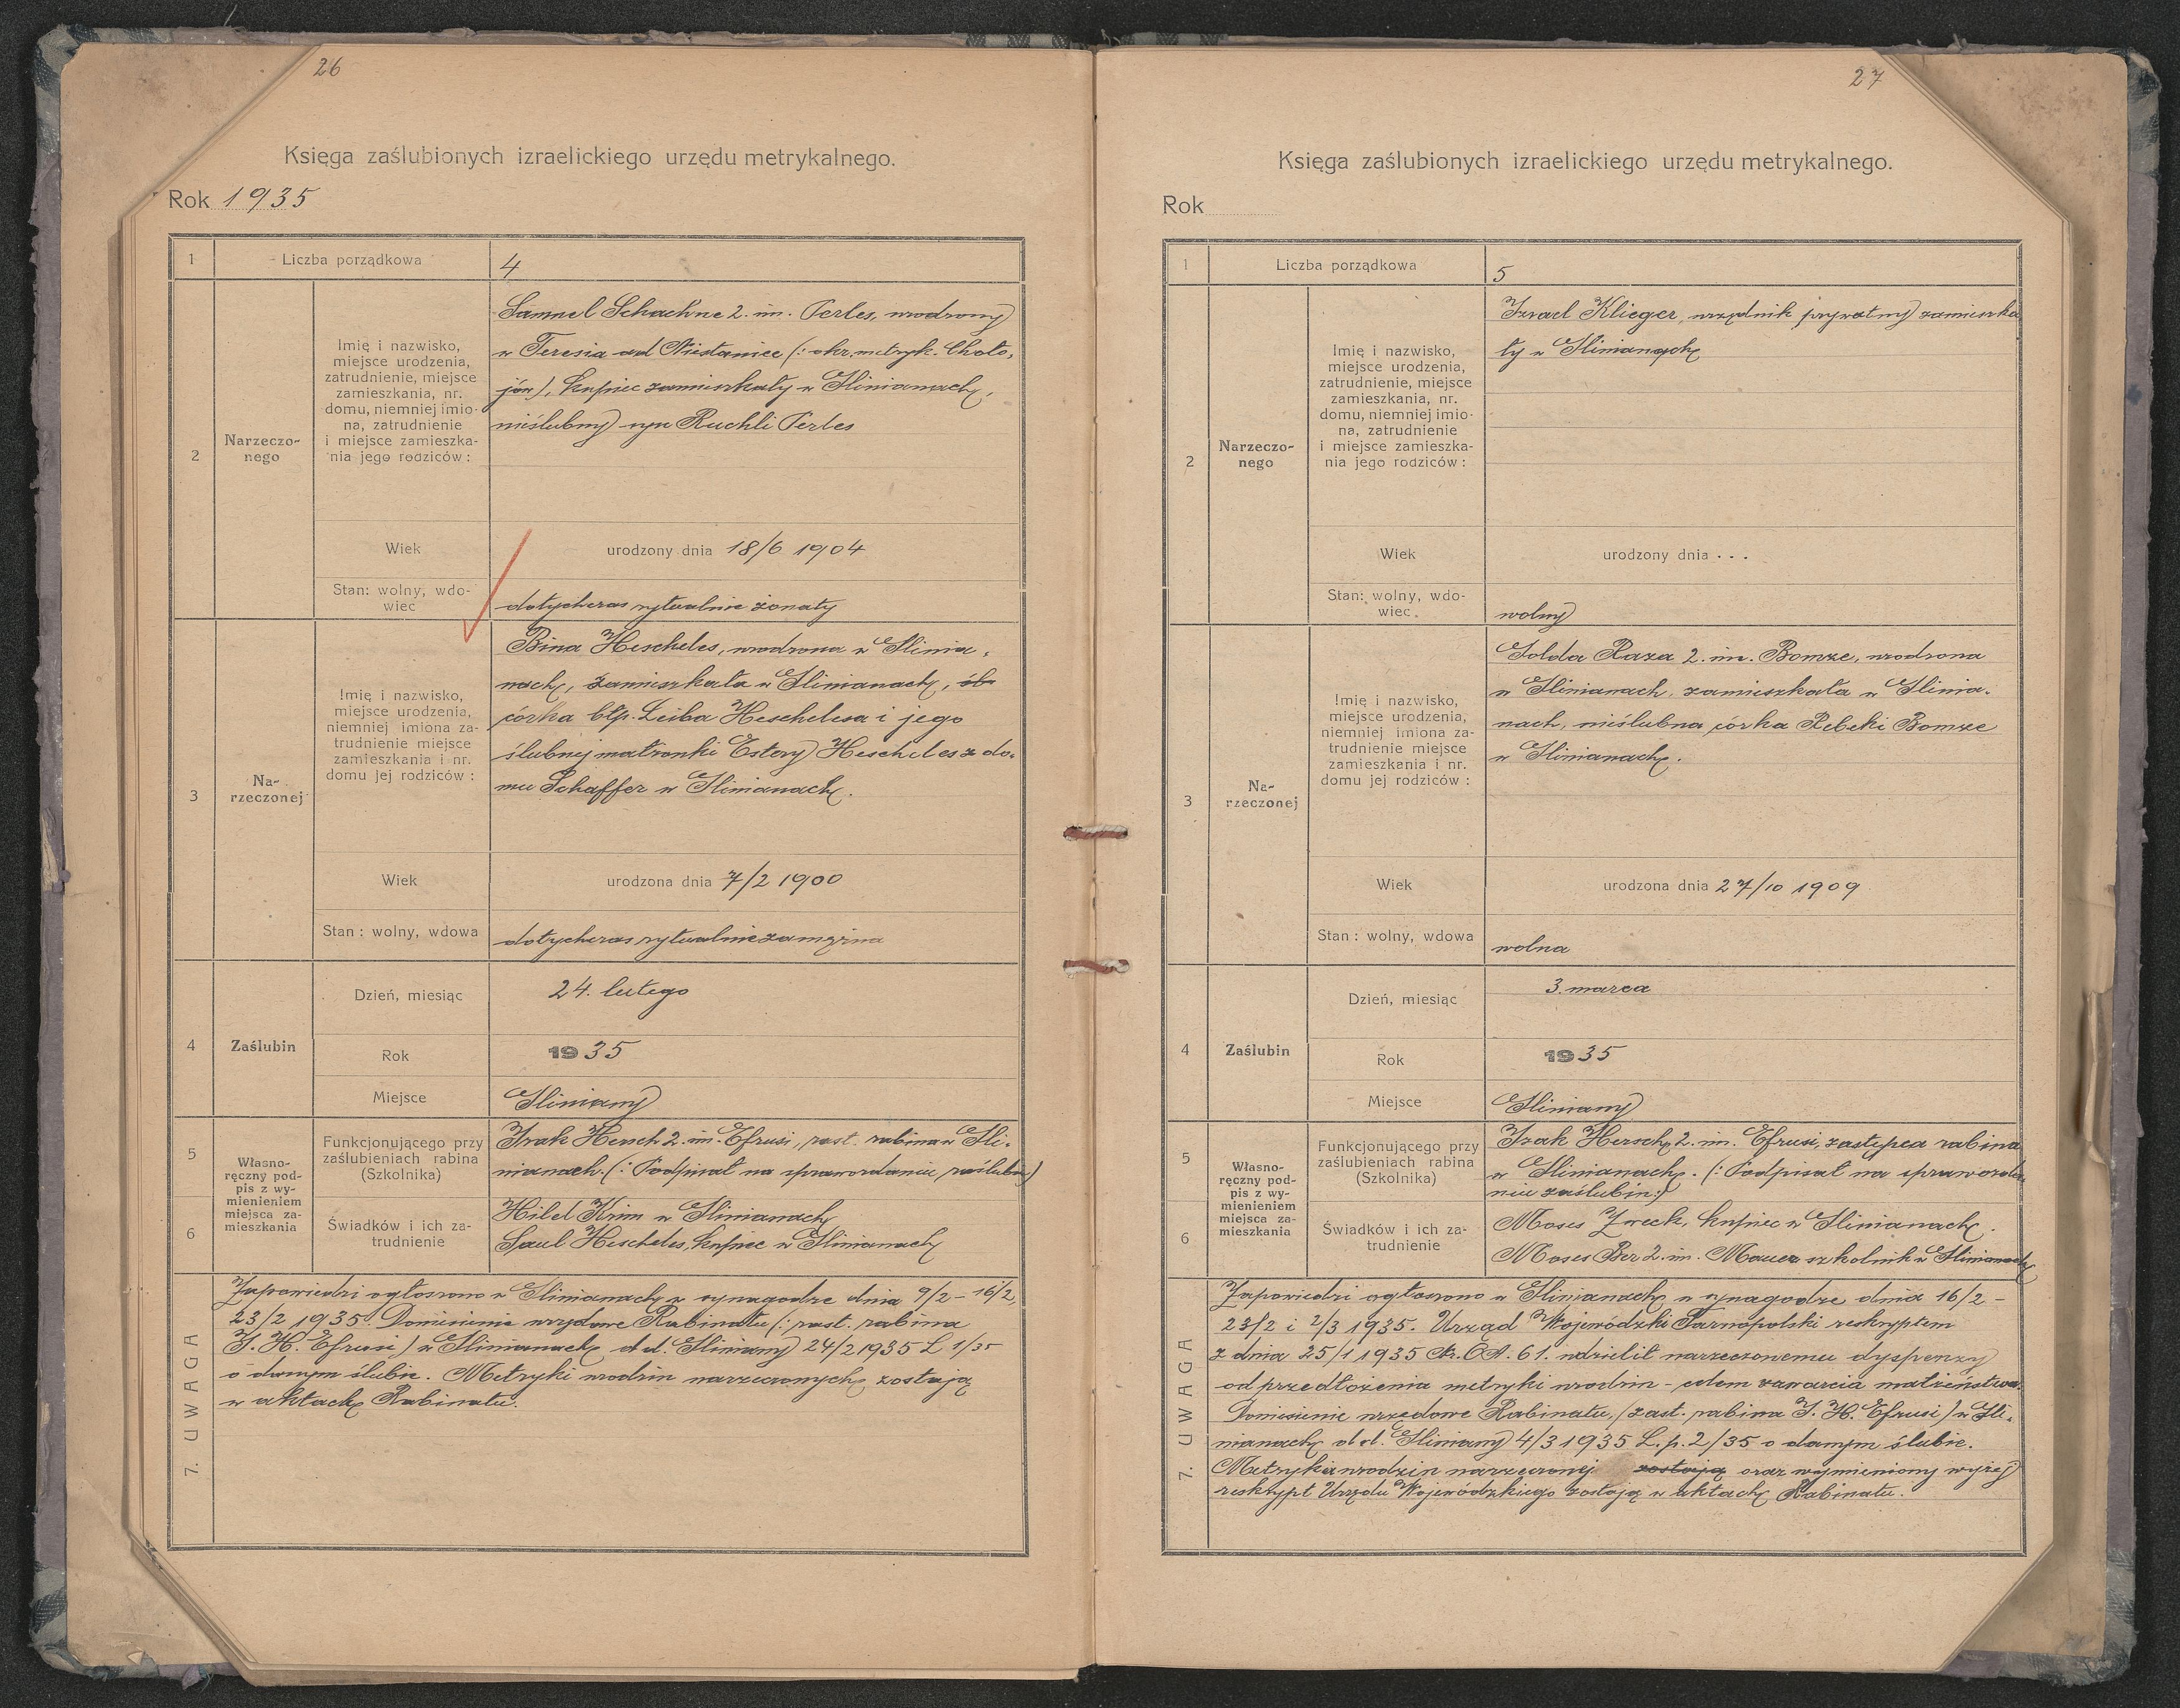 26
Księga zaślubionych izraelickiego urzędu metrykalnego.
Rok 1935
1
Liczba porządkowa
4
2
Narzeczo-
nego
Imię i nazwisko,
miejsce urodzenia,
zatrudnienie, miejsce
zamieszkania, nr.
domu, niemniej imio-
na, zatrudnienie
i miejsce zamieszka-
nia jego rodziców:
Samuel Schachne 2. im. Perles, urodzony
w Teresia ad Niestanice (: okr. metryk. Choło-
jów), kupiec zamieszkały w Glinianach,
nieślubny syn Ruchli Perles
Wiek
urodzony dnia 18/6 1904
Stan: wolny, wdo-
wiec
dotychczas rytualnie żonaty
3
Na-
rzeczonej
Imię i nazwisko,
miejsce urodzenia,
niemniej imiona za-
trudnienie miejsce
zamieszkania i nr.
domu jej rodziców:
Bina Hescheles, urodzona w Glinia-
nach, zamieszkała w Glinianach,
córka błp. Leiba Heschelesa i jego
ślubnej małżonki Estery Hescheles z do-
mu Schaffer w Glinianach.
Wiek
urodzona dnia 7/2 1900
Stan: wolny, wdowa
dotychczas rytualnie zamężna
4
Zaślubin
Dzień, miesiąc
24. lutego
Rok
1935
Miejsce
Gliniany
5
6
Własno-
ręczny pod-
pis z wy-
mienieniem
miejsca za-
mieszkania
Funkcjonującego przy
zaślubieniach rabina
(Szkolnika)
Izak Hersch 2. im. Efrusi, zast. rabina w Gli-
nianach. (: Podpisał na sprawozdaniu zaślubin)
Świadków i ich za-
trudnienie
Hilel Krim w Glinianach
Saul Hescheles, kupiec w Glinianach
7. UWAGA
Zapowiedzi ogłoszono w Glinianach w synagodze dnia 9/2 - 16/2,
23/2 1935. Doniesienie urzędowe Rabinatu (: zast. rabina
I. H. Efrusi) w Glinianach d.d. Gliniany 24/2 1935 L 1/35
o danym ślubie. Metryki urodzin narzeczonych zostają
w aktach Rabinatu.
27
Księga zaślubionych izraelickiego urzędu metrykalnego.
Rok
1
Liczba porządkowa
5
2
Narzeczo-
nego
Imię i nazwisko,
miejsce urodzenia,
zatrudnienie, miejsce
zamieszkania, nr.
domu, niemniej imio-
na, zatrudnienie
i miejsce zamieszka-
nia jego rodziców:
Izrael Klieger, urzędnik prywatny zamieszka
ły w Glinianach
Wiek
urodzony dnia . . .
Stan: wolny, wdo-
wiec.
wolny
3
Na-
rzeczonej
Imię i nazwisko,
miejsce urodzenia,
niemniej imiona za-
trudnienie miejsce
zamieszkania i nr.
domu jej rodziców:
Golda Raza 2. im. Bomze, urodzona
w Glinianach, zamieszkała w Glinia-
nach, nieślubna córka Rebeki Bomze
w Glinianach.
Wiek
urodzona dnia 27/10 1909
Stan: wolny, wdowa
wolna
4
Zaślubin
Dzień, miesiąc
3. marca
Rok
1935
Miejsce
Gliniany
5
6
Własno-
ręczny pod-
pis z wy-
mienieniem
miejsca za-
mieszkania
Funkcjonującego przy
zaślubieniach rabina
(Szkolnika)
Izak Hersch 2. im. Efrusi, zastępca rabina
w Glinianach. (: Podpisał na sprawozda-
niu zaślubin:)
Świadków i ich za-
trudnienie
Moses Zweck, kupiec w Glinianach.
Moses Ber 2. im. Mauer szkolnik w Glinianach
7. UWAGA
Zapowiedzi ogłoszono w Glinianach w synagodze dnia 16/2 -
23/2 i 2/3 1935. Urząd Wojewódzki Tarnopolski reskryptem
z dnia 25/1 1935 Nr. CA. 61. udzielił narzeczonemu dyspenzy
od przedłożenia metryki urodzin - celem zawarcia małżeństwa.
Doniesienie urzędowe Rabinatu, (zast. rabina I. H. Efrusi) w Gli-
nianach d.d. Gliniany 4/3 1935 L.p. 2/35 o danym ślubie.
Metryka urodzin narzeczonej zostają oraz wymieniony wyżej
reskrypt Urzędu Wojewódzkiego zostają w aktach Rabinatu.